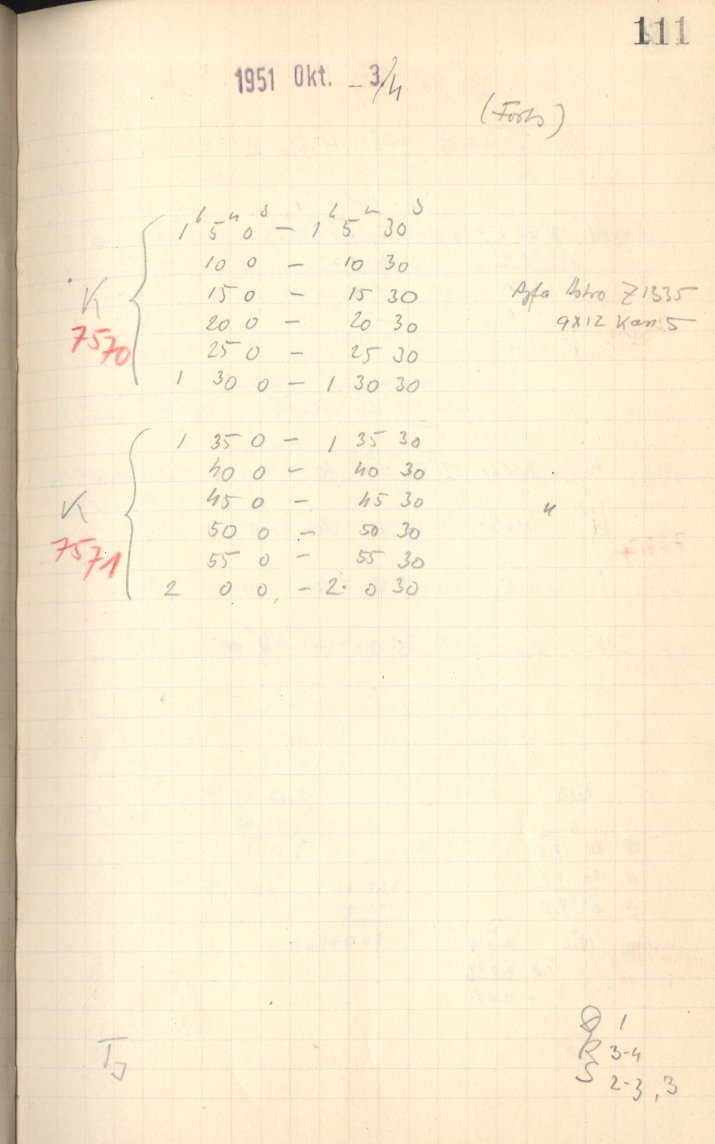 111
1951 Okt. _ 3./4
(Forts)
1ʰ 5ᵐ 0ˢ — 1ʰ 5ᵐ 30ˢ
10 0 — 10 30
K 15 0 — 15 30 Agfa Astro Z1335
7570 20 0 — 20 30 9x12 Kass 5
25 0 — 25 30
1 30 0 — 1 30 30
1 35 0 — 1 35 30
40 0 — 40 30
K 45 0 — 45 30 "
7571 50 0 — 50 30
55 0 — 55 30
2 0 0 — 2 0 30
1
R 3-4
TJ S 2-3, 3